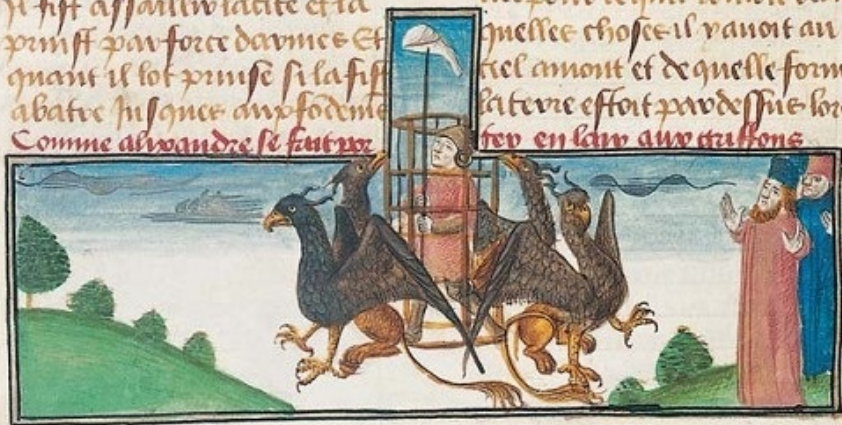 fist assaillir la cite et la
prinst par force darmes Et
quant il lot prinse si la fist
abatre Jusques aux fodeme
quelles choses il y auoit au
ciel amont et de quelle form
la terre estoit par dessus lor
Comme alixandre se fait por ter en lair aux griffons